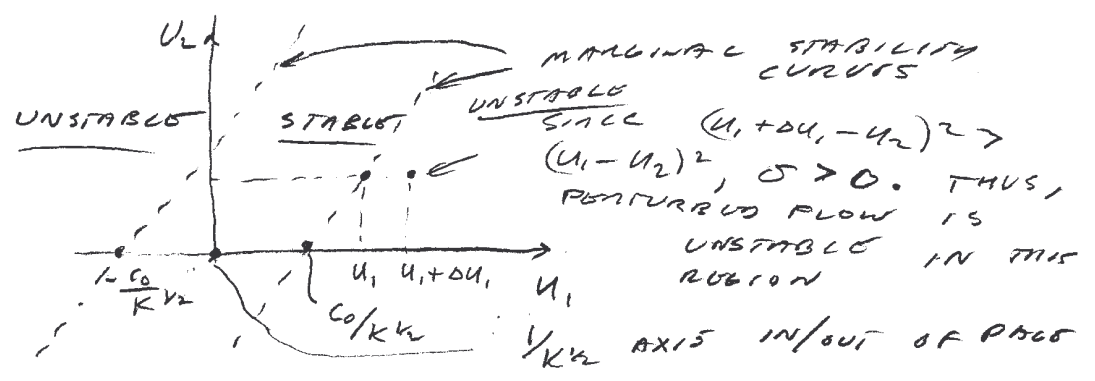 U₂
MARGINAL STABILITY
CURVES
UNSTABLE
STABLE
UNSTABLE
SINCE (U₁+ΔU₁-U₂)² >
(U₁-U₂)², σ > 0. THUS,
PERTURBED FLOW IS
UNSTABLE IN THIS
REGION
-C₀/K^½
C₀/K^½
U₁
U₁+ΔU₁
U₁
1/K^½ AXIS IN/OUT OF PAGE